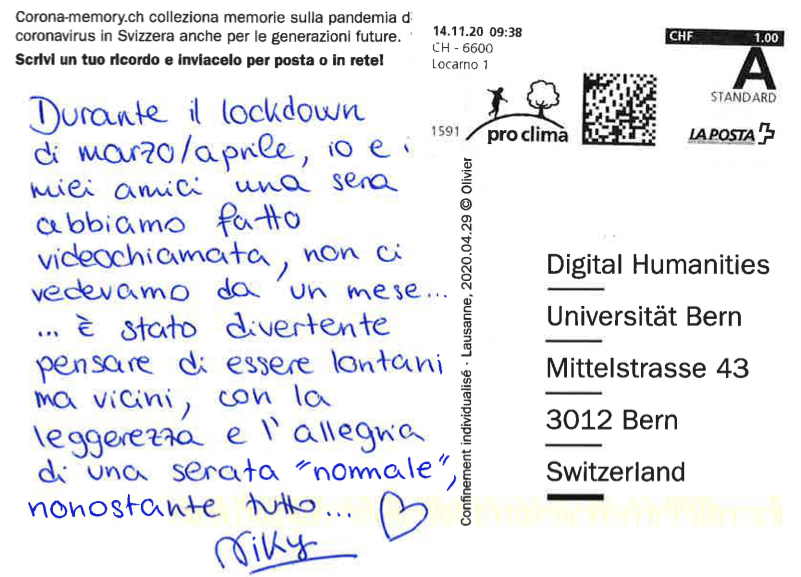 Corona-memory.ch colleziona memorie sulla pandemia d
coronavirus in Svizzera anche per le generazioni future.
Scrivi un tuo ricordo e inviacelo per posta o in rete!
Durante il lockdown
di marzo/aprile, io e i
miei amici una sera
abbiamo fatto
videochiamata, non ci
vedevamo da un mese...
... È stato divertente
pensare di essere lontani
ma vicini, con la
leggerezza e l'allegria
di una serata "normale",
nonostante tutto... ♡
Niky
14.11.20 09:38
CH - 6600
Locarno 1
1591
pro clima
CHF 1.00
A
STANDARD
LA POSTA
Confinement individualisé · Lausanne, 2020.04.29 © Olivier
Digital Humanities
Universität Bern
Mittelstrasse 43
3012 Bern
Switzerland